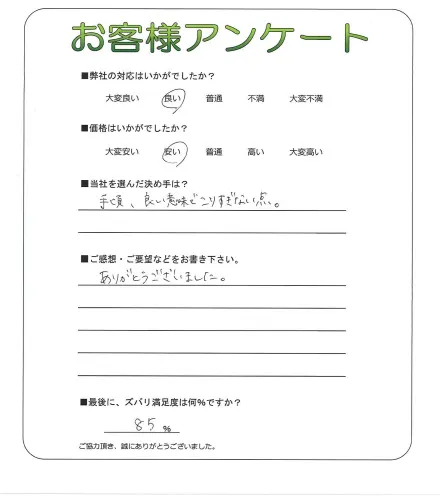 お客様アンケート
■弊社の対応はいかがでしたか?
大変良い 良い 普通 不満 大変不満
■価格はいかがでしたか?
大変安い 安い 普通 高い 大変高い
■当社を選んだ決め手は?
手頃、良い意味でこりすぎない点。
■ご感想・ご要望などをお書き下さい。
ありがとうございました。
■最後に、ズバリ満足度は何%ですか?
85 %
ご協力頂き、誠にありがとうございました。